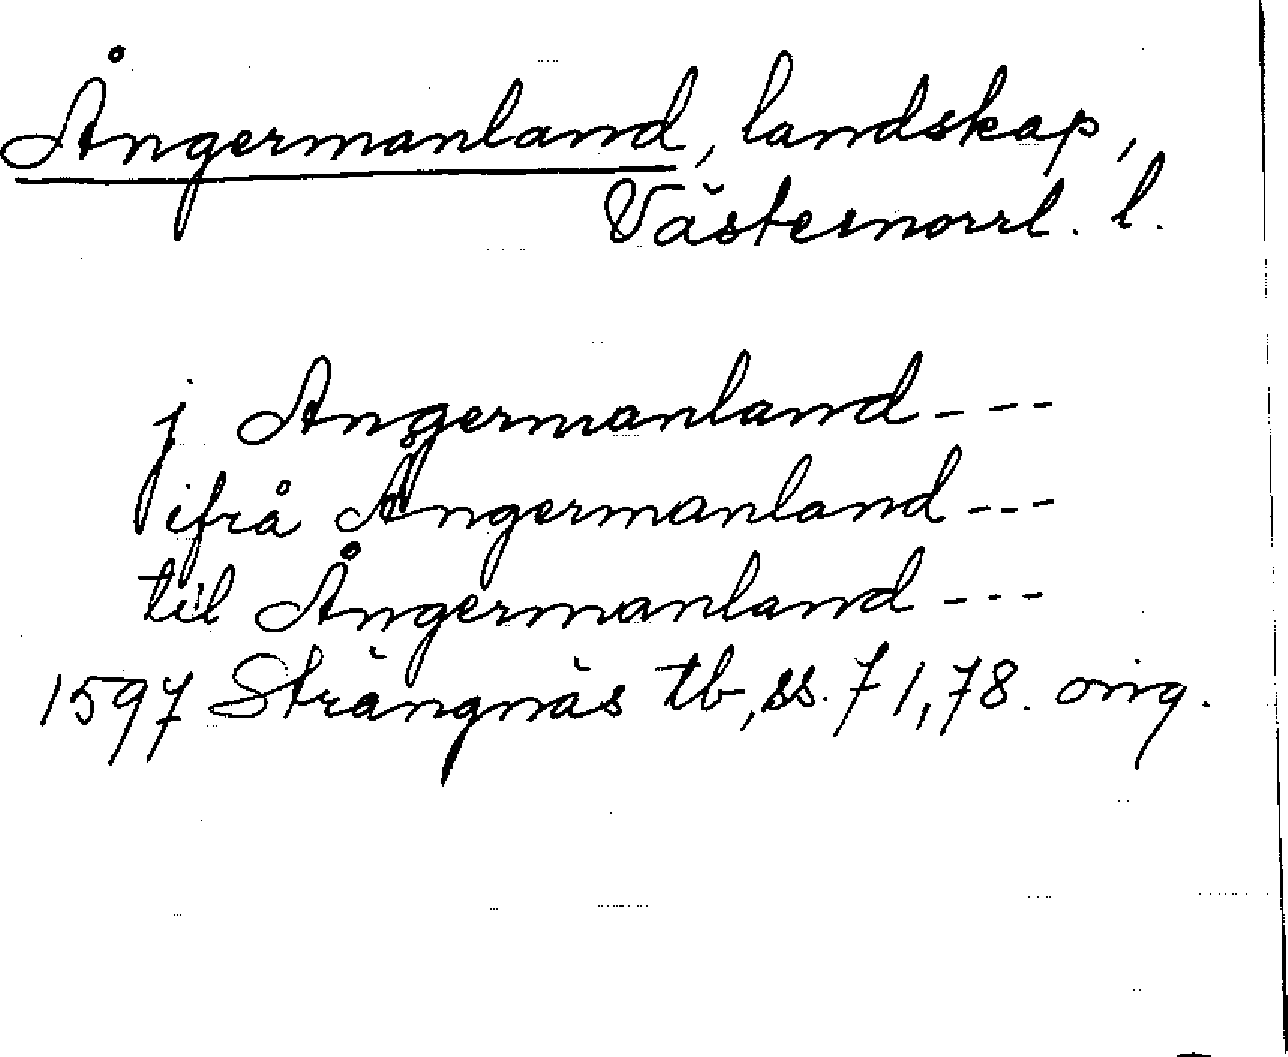 Ångermanland, landskap,
Västernorrl. l.
j Angermanland - - -
ifrå Ångermanland - - -
til Ångermanland - - -
1597 Strängnäs tb, ss. 71, 78. orig.